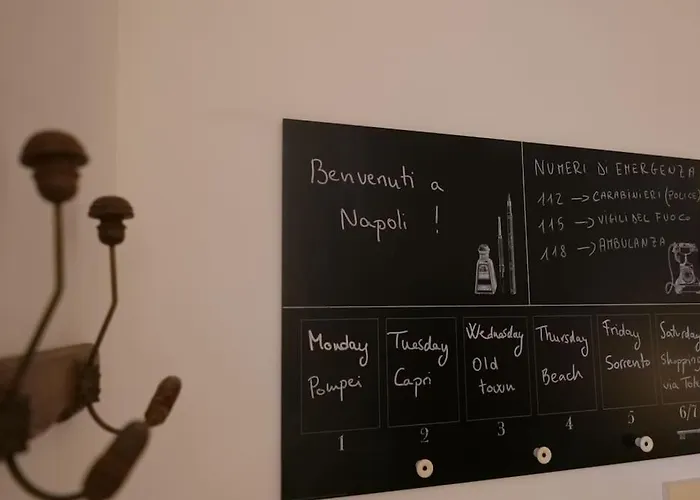 Benvenuti a
Napoli !
NUMERI DI EMERGENZA
112 → CARABINIERI (POLICE)
115 → VIGILI DEL FUOCO
118 → AMBULANZA
Monday
Pompei
1
Tuesday
Capri
2
Wednesday
Old
town
3
Thursday
Beach
4
Friday
Sorrento
5
Saturday
Shopping
via
6/7